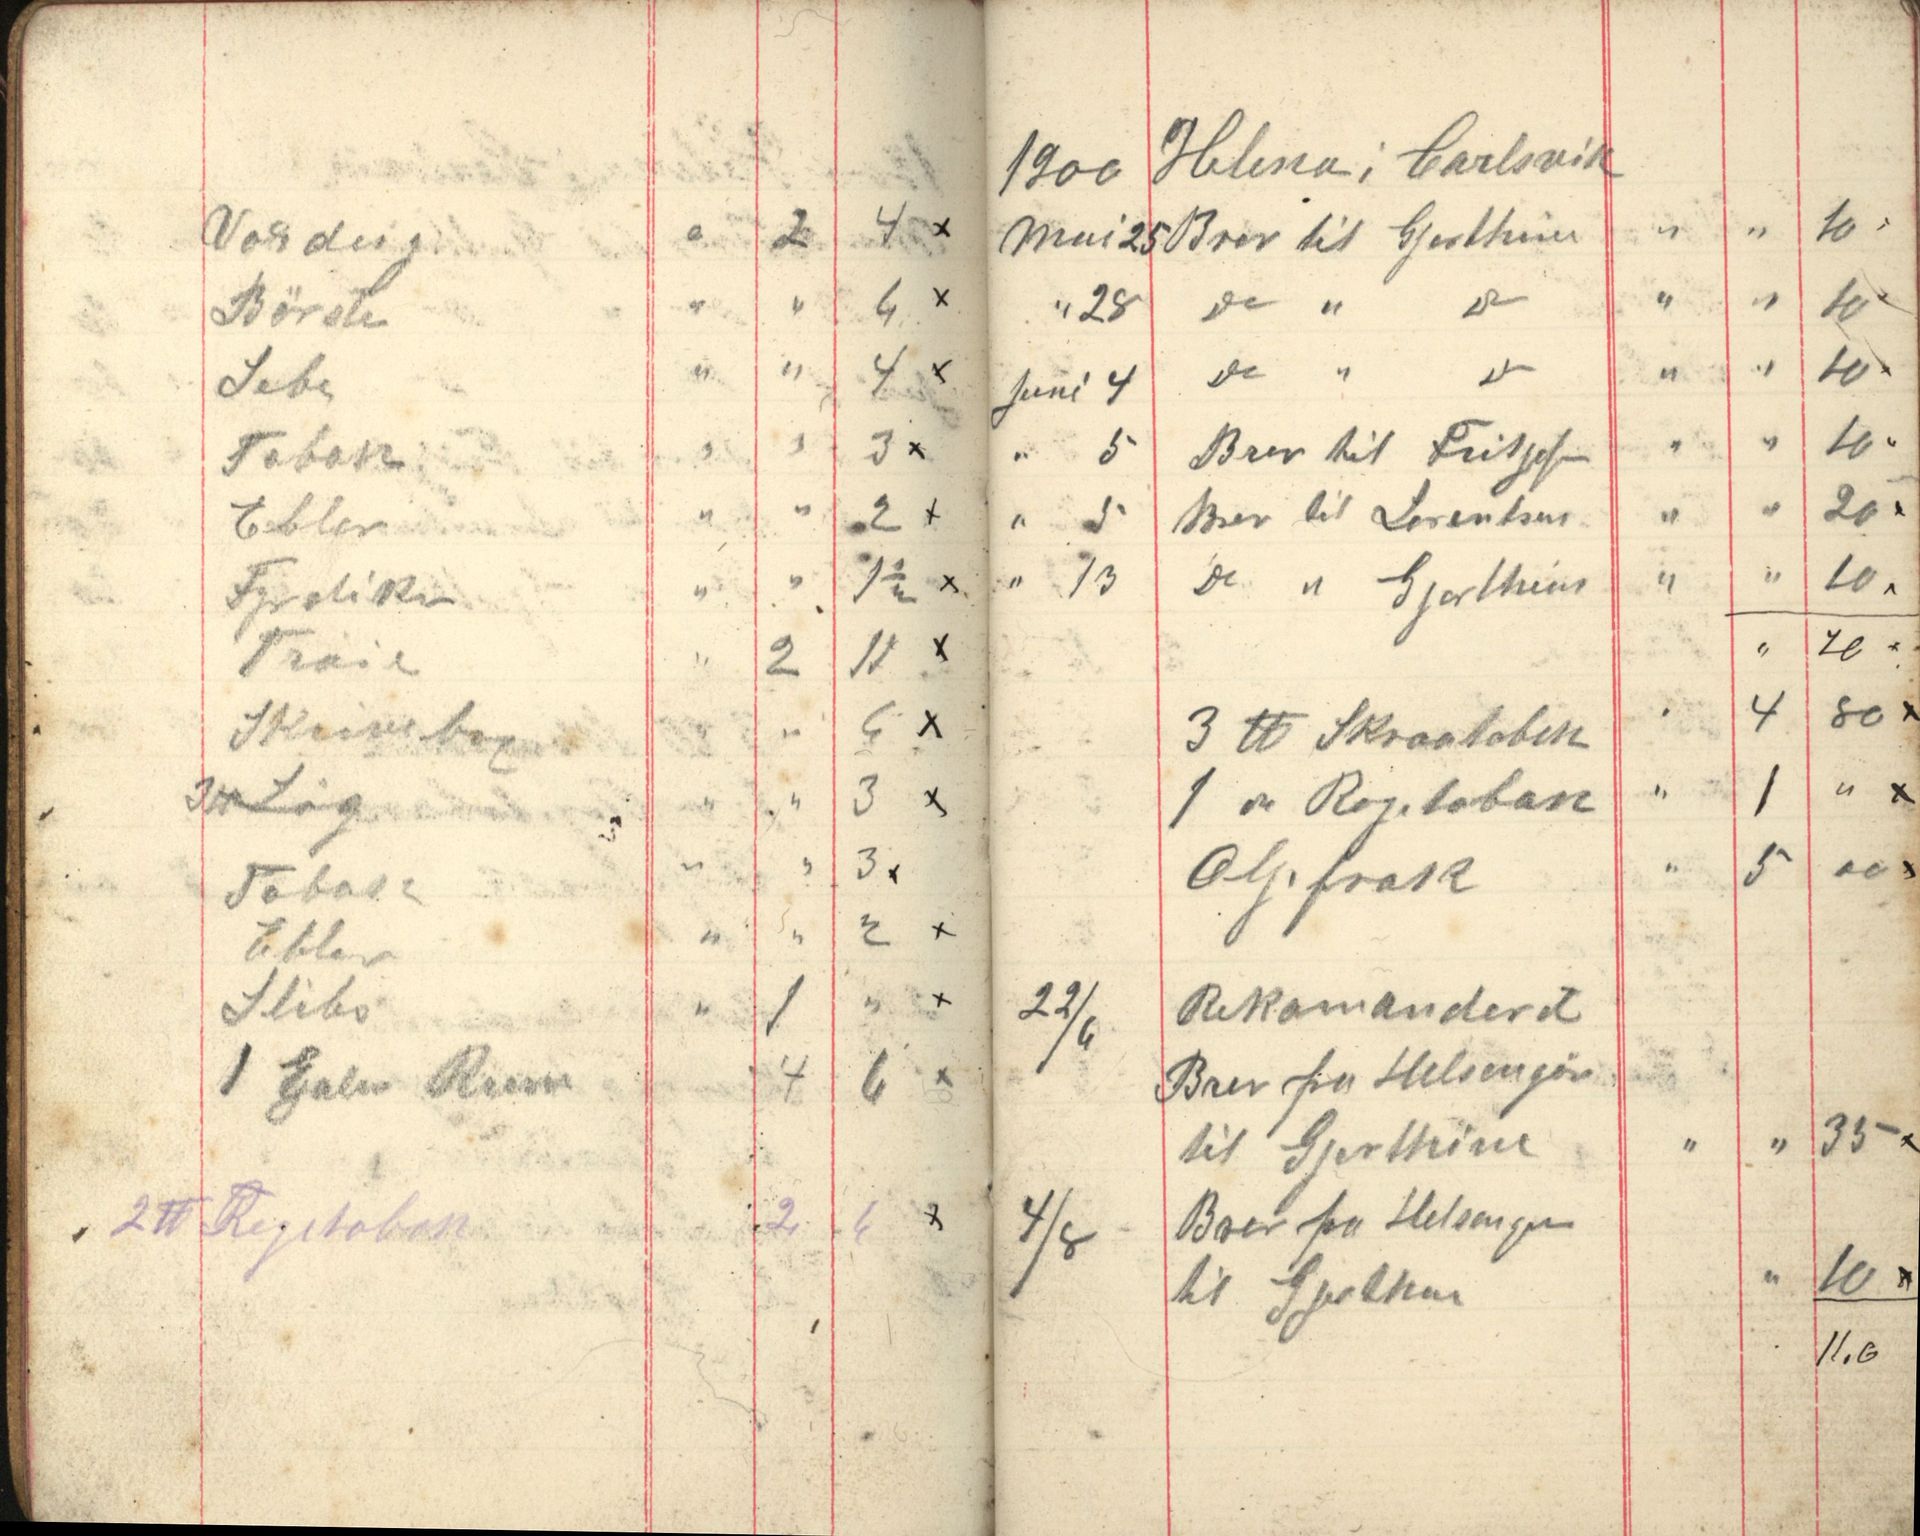 Vosding " 2 4 x
Börste " " 6 x
Sebe " " 4 x
Tobak " " 3 x
Ebler " " 2 x
Fyrstiker " " 1½ x
Traie " 2 11 x
Skrivebog " " 6 x
3 ℔ Løg " " 3 x
Tobak " " 3 x
Ebler " " 2 x
Slibs " 1 " x
1 Galn Rum 4 6 x
2 ℔ Rygetobak 2 6 x
1900 Helena i Carlsvik
Mai 25 Brev til Gjerthine " " 10
" 28 do " do " " 10
Juni 4 do " do " " 10
" 5 Brev til " " 10
" 5 Brev til Lorentsen " " 20
" 13 do " Gjerthine " " 10
" 70
3 ℔ Skraatobak " 4 80 x
1 do Rygetobak " 1 " x
Oljefrak " 5 00 x
22/6 Rekomanderet
Brev fra Helsengør
til Gjerthine " " 35 x
4/8 Brev fra Helsengør
til Gjerthine " 10 x
11.0